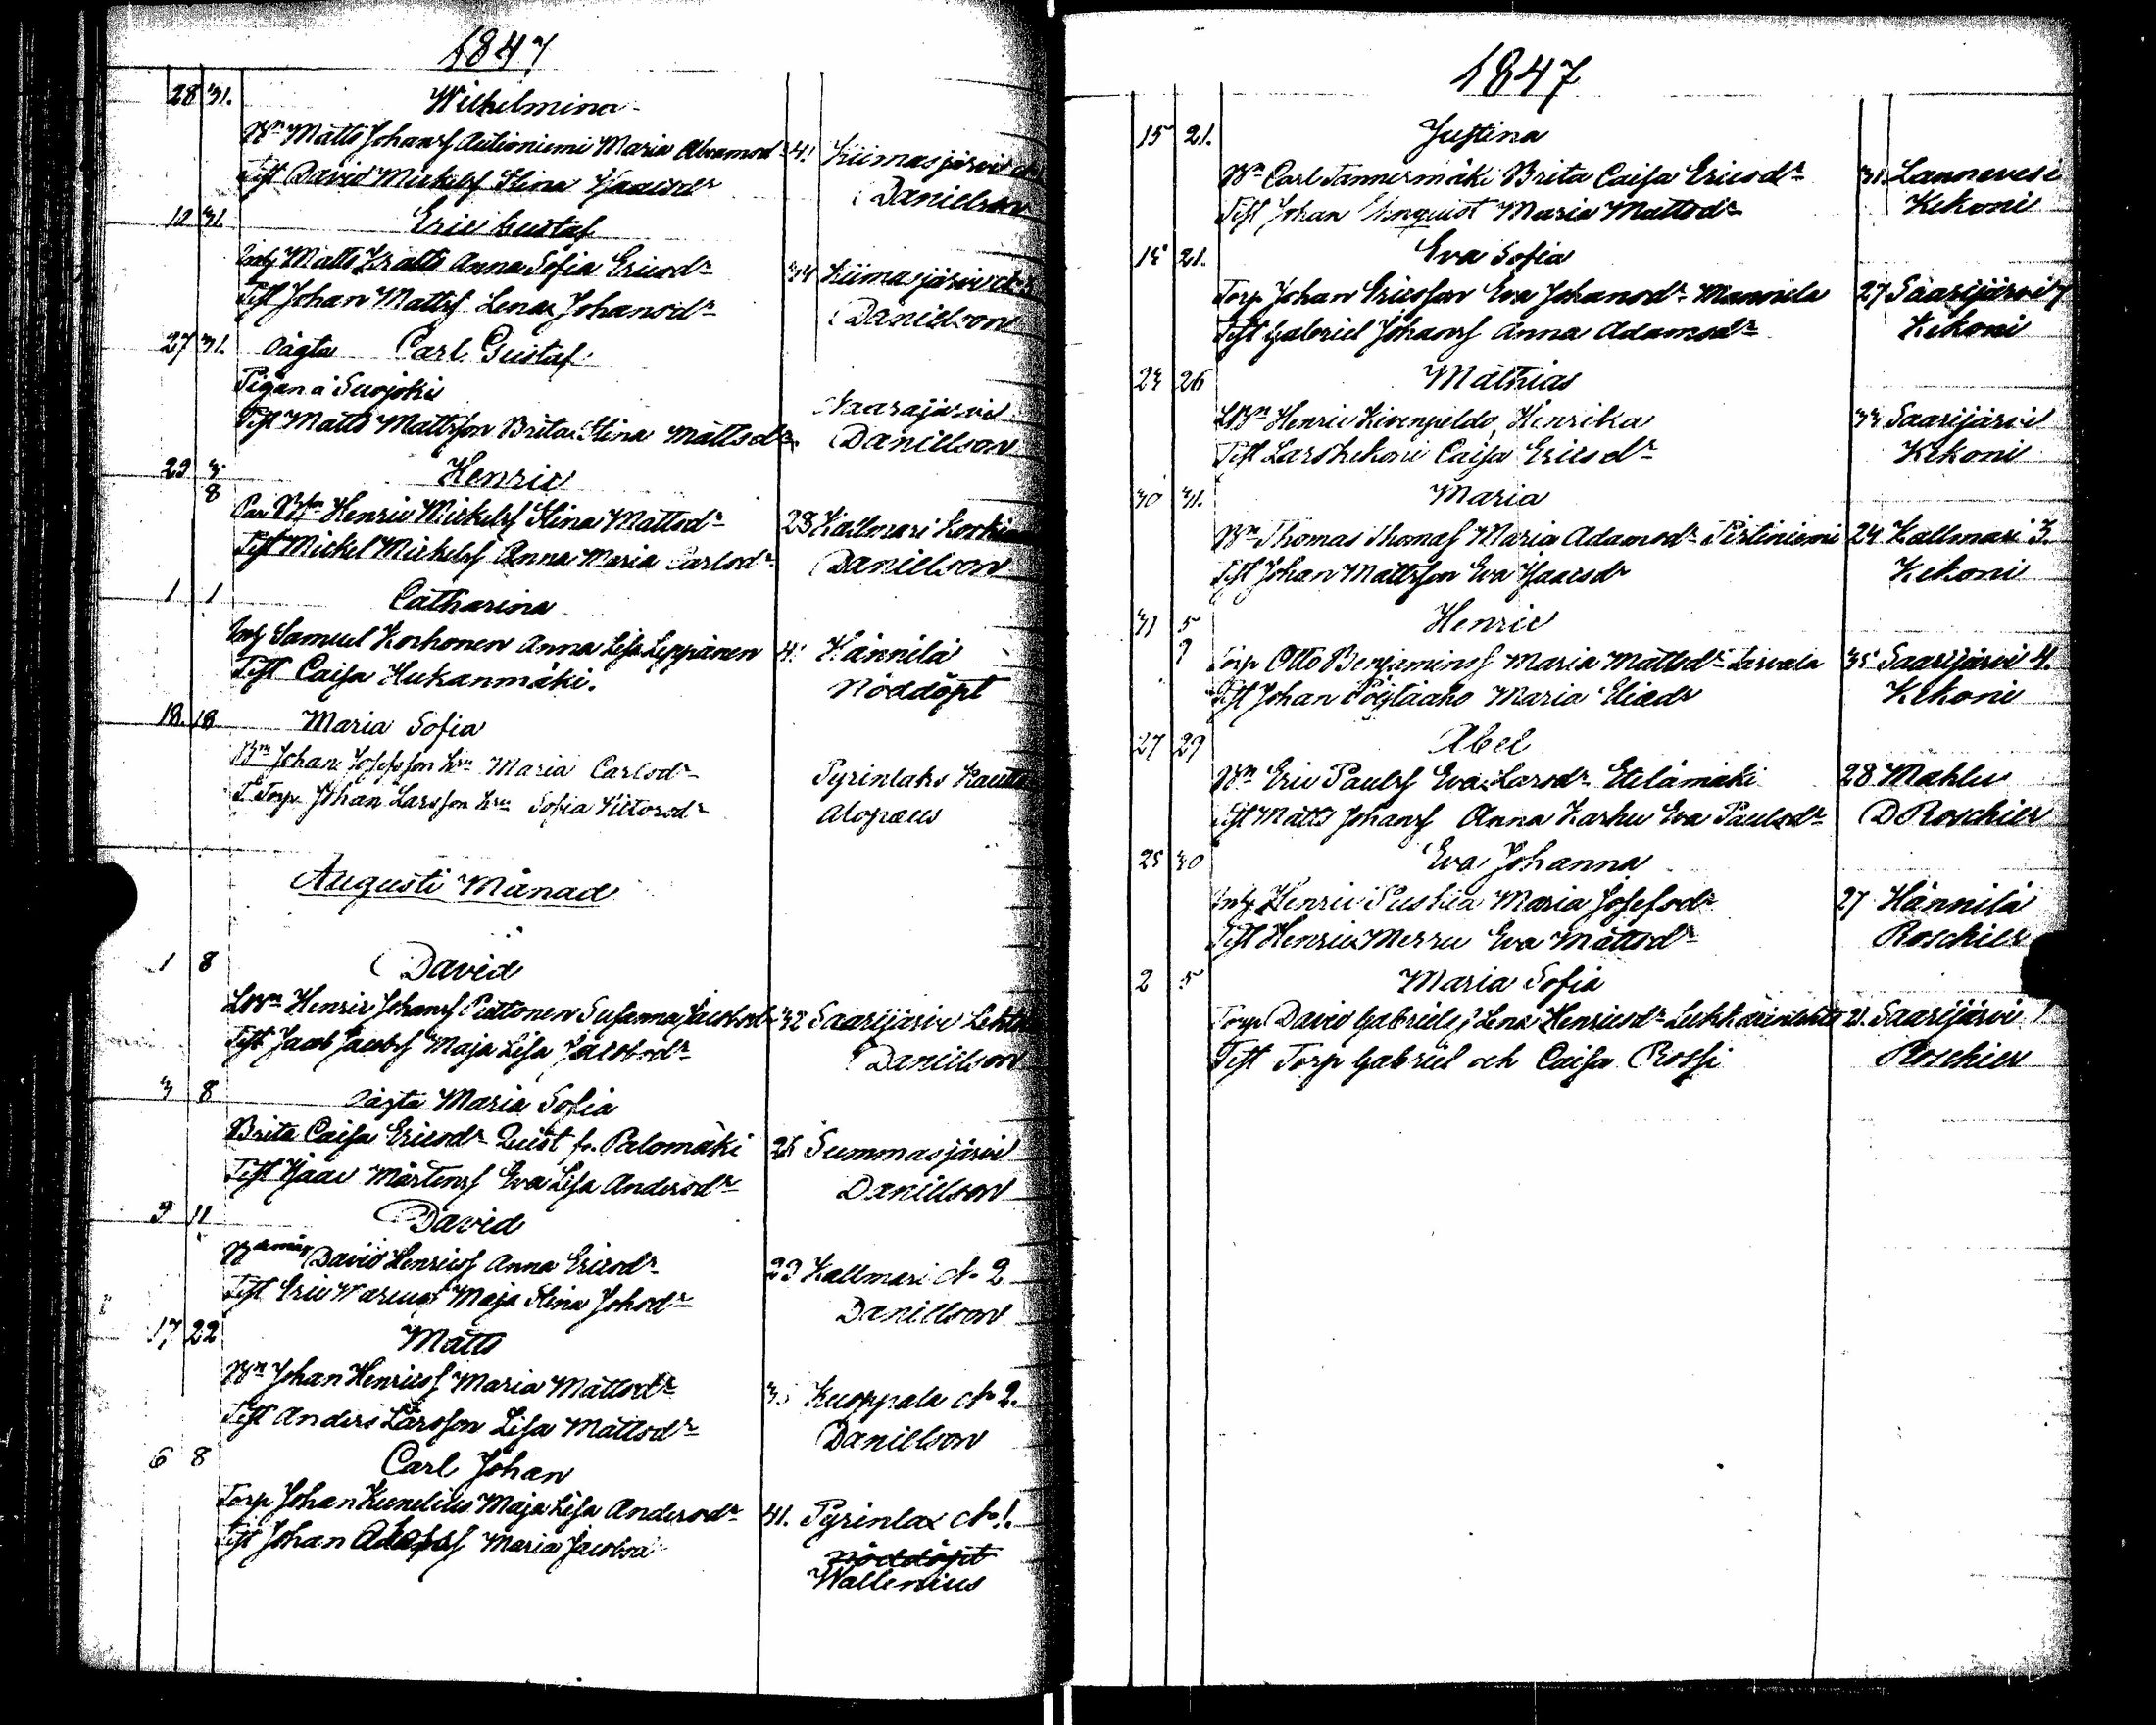 1847
28 31. Wilhelmina
Bn Matts Johansf Autioniemi Maria Abramsdr 41 Kiimasjärvi
Test David Mickelsf Stina Isacsdr Danielson
12 31. Eric Gustaf
Inh Matts Kratts Anna Sofia Ericsdr 34 Kiimasjärvi
Test Johan Mattsf Lena Johansdr Danielson
27 31. oägta Carl Gustaf
Pigan a Suojoki
Naarajärvi
Test Matts Mattsson Brita Stina Mattsdr Danielson
29 3 Henric
8
Bn Henric Mickelsf Stina Mattsdr 28 Kallmari
Test Mickel Mickelsf Anna Maria Carlsdr Danielson
1 1 Catharina
Inh Samuel Korhonen Anna Lisa Leppänen 41 Hännilä
Test Caisa Hukanmäki. Nöddöpt
18 18 Maria Sofia
Bn Johan Josefsson hru Maria Carlsdr Pyrinlaks
T Torp. Johan Larsson hru Sofia Alopaeus
Augusti Månad
1 8 David
LBn Henric Johansf Piittonen Susanna Jacobsdr 32 Saarijärvi
Test Jacob Jacobsf Maja Lisa Jacobsdr Danielson
3 8 oägta Maria Sofia
Brita Caisa Ericsdr Quist fr. Palomäki 26 Summasjärvi
Test Isaac Mårtensf Eva Lisa Andersdr Danielson
9 11 David
David Henricsf Anna Ericsdr 29 Kallmari No 2
Test Eric Maja Stina Johsdr Danielson
17 22 Matts
Bn Johan Henricsf Maria Mattsdr Kuoppala No 2.
Test Anders Larsson Lisa Mattsdr Danielson
6 8 Carl Johan
Torp Johan Kunelius Maja Lisa Andersdr 41. Pyrinlax No 1.
Test Johan Maria Jacobsd nöddöpt
Wallenius
1847
15 21. Justina
Bn Carl Tannermäki Brita Caisa Ericsdr 31. Lannevesi
Test Johan Maria Mattsdr Kekoni
15 21. Eva Sofia
Torp Johan Ericsson Eva Johansdr Mannila 27 Saarijärvi 7
Test Gabriel Johansf Anna Adamsdr Kekoni
24 26 Mathias
LBn Henric Kivenpeldo, Henrika 33 Saarijärvi
Test Lars Kekoni Caisa Ericsdr Kekoni
30 31. Maria
Bn Thomas Thomasf Maria Adamsdr Pirtiniemi 24 Kallmari 3.
Test Johan Mattsson Eva Isacsdr Kekoni
31 5 Henric
9 Torp Otto Benjaminsf Maria Mattsdr 35 Saarijärvi 4.
Test Johan Maria Eliadr Kekoni
27 29 Abel
Bn Eric Paulsf Eva Larsdr Etelämäki 28 Mahlu
Test Matts Johansf Anna Karhu Eva Paulsdr D Roschier
25 30 Eva Johanna
Inh Henric Puskia Maria Josefsdr 27 Hännilä
Test Henric Merru Eva Mattsdr Roschier
2 5 Maria Sofia
Torp David Gabrielsf Lena Henricsdr 21. Saarijärvi
Test Torp Gabriel och Caisa Rossi Roschier